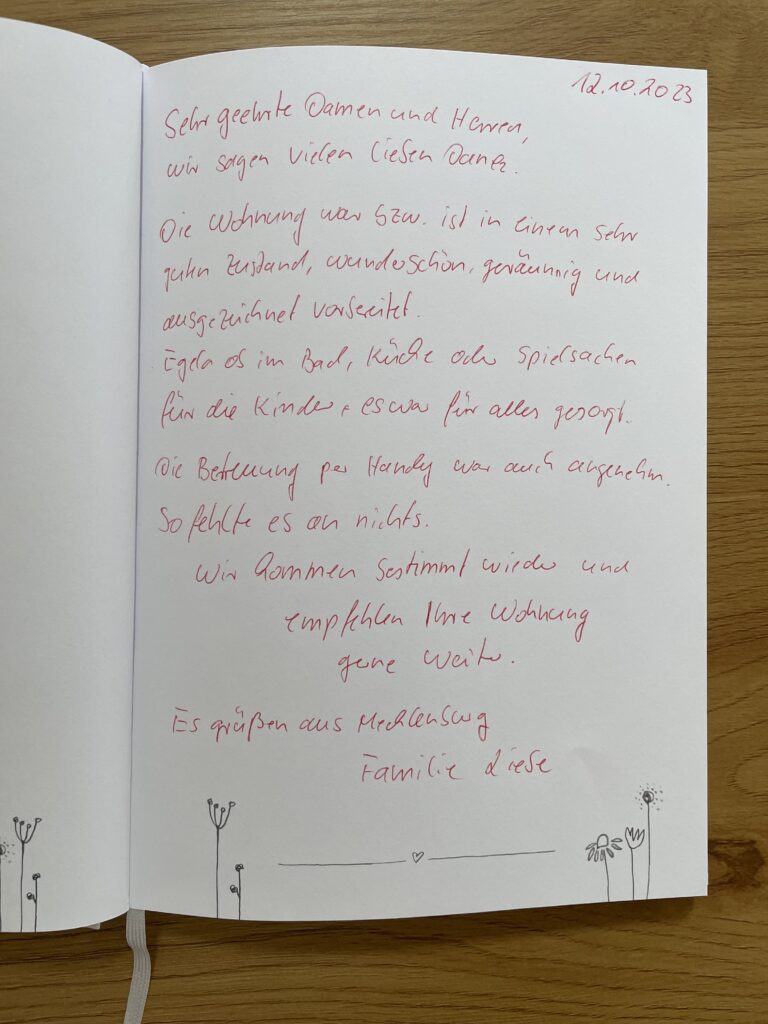 12.10.2023
Sehr geehrte Damen und Herren,
wir sagen vielen lieben Dank.
Die Wohnung war bzw. ist in einem sehr
guten Zustand, wunderschön, geräumig und
ausgezeichnet vorbereitet.
Egal ob im Bad, Küche oder Spielsachen
für die Kinder, es war für alles gesorgt.
Die Betreuung per Handy war auch angenehm.
So fehlte es an nichts.
Wir kommen bestimmt wieder und
empfehlen Ihre Wohnung
gerne weiter.
Es grüßen aus Mecklenburg
Familie